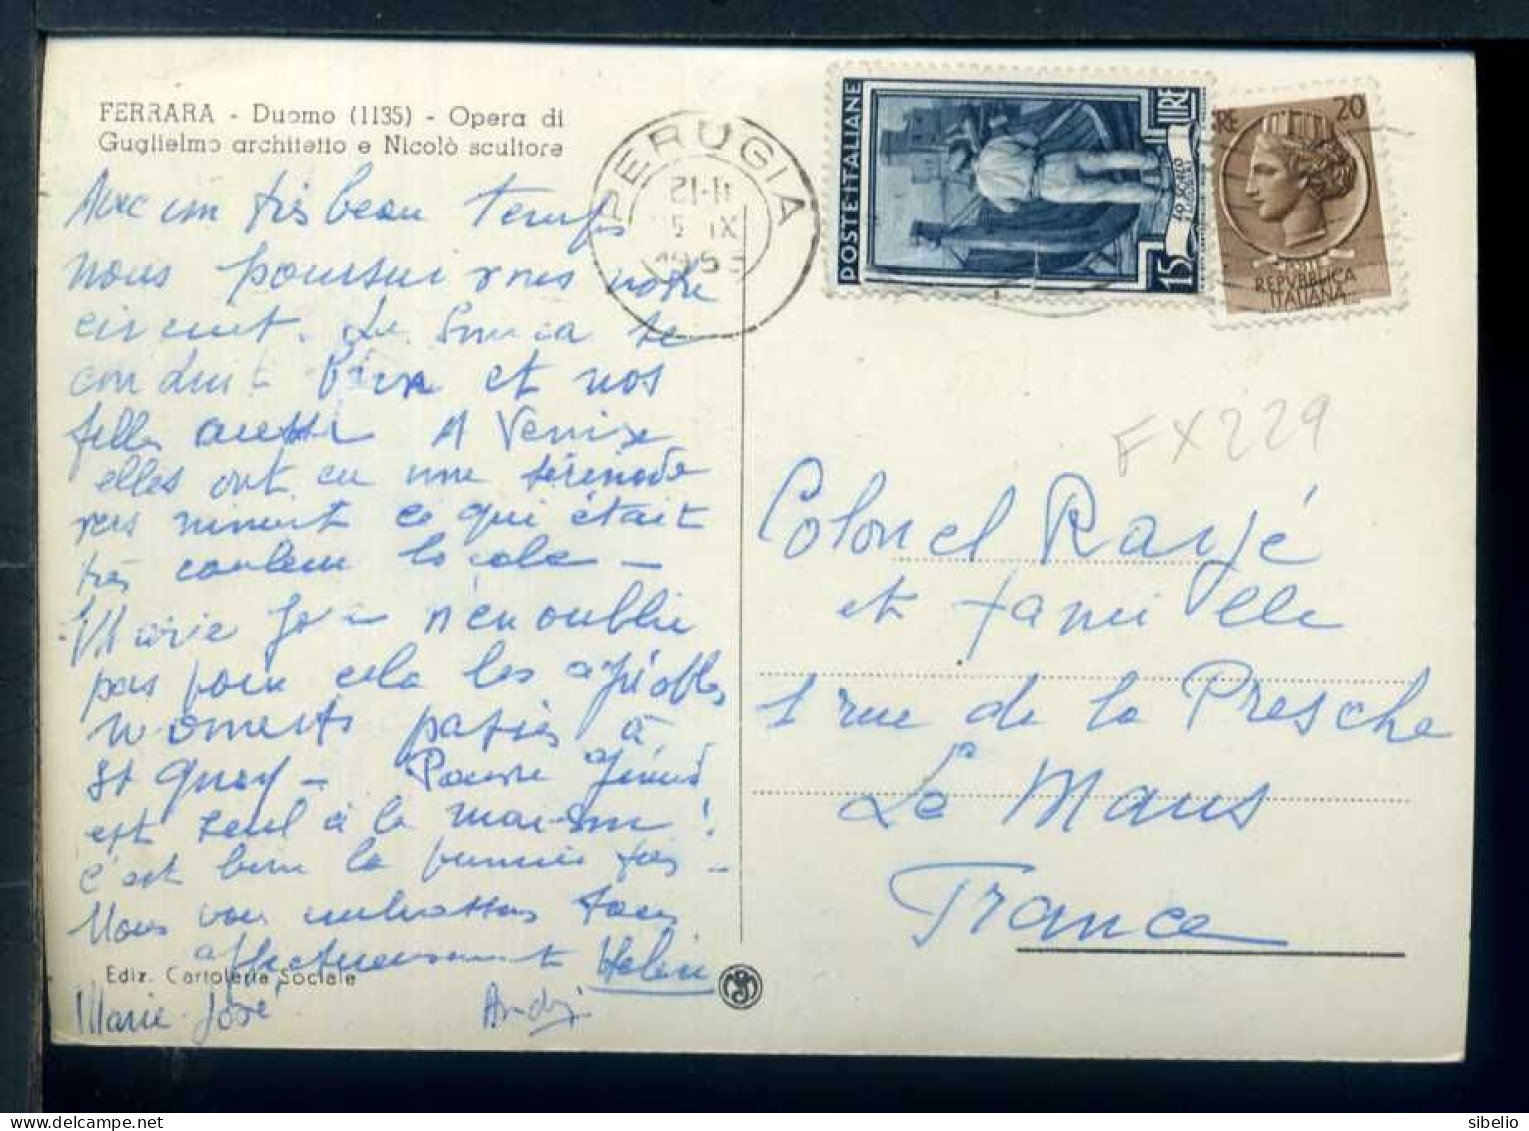 FERRARA - Duomo (1135) - Opera di
Guglielmo architetto e Nicolò scultore
Avec un très beau temps
nous poursuivons notre
circuit. Le Simca se
conduit bien et nos
filles aussi A Venise
elles ont eu une sérénade
vers minuit ce qui était
très couleur locale -
Marie Jo n'en oublie
pas pour cela les agréables
moments passés à
St Quay - Pauvre Gérard
est seul à la maison !
c'est bien la première fois -
Nous vous embrassons tous
affectueusement Hélène
Ediz. Cartoleria Sociale
Marie-José
PERUGIA
21-11
5 IX
POSTE ITALIANE
15
LIRE
LO SCALO
20
REPVBBLICA
ITALIANA
FX229
Colonel
et famille
1 rue de la Presche
Le Mans
France
sibelio